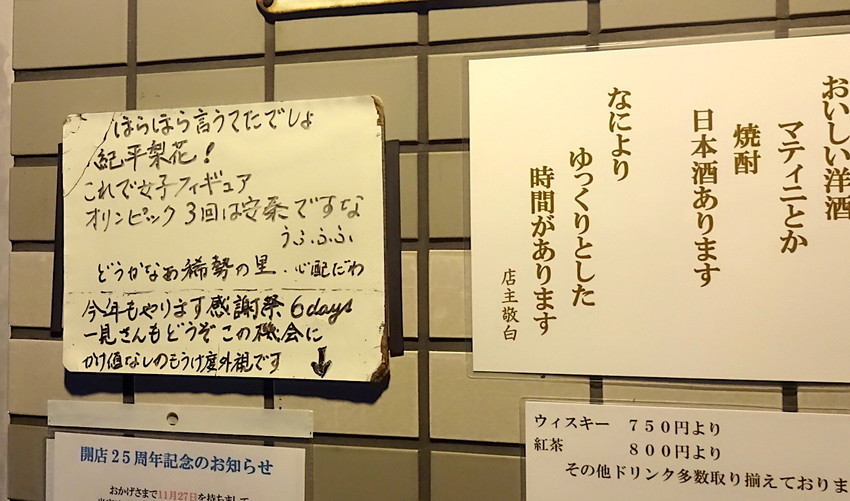 ほらほら言うてたでしょ
紀平梨花!
これで女子フィギュア
オリンピック3回は安泰ですな
うふふふ
どうかなあ稀勢の里・心配だわ
今年もやります感謝祭6days
一見さんもどうぞこの機会に
かけ値なしのもうけ度外視です ↓
おいしい洋酒
マティニとか
焼酎
日本酒あります
なにより
ゆっくりとした
時間があります
店主敬白
開店25周年記念のお知らせ
おかげさまで11月27日を持ちまして
ウィスキー 750円より
紅茶 800円より
その他ドリンタ多数取り揃えておりま